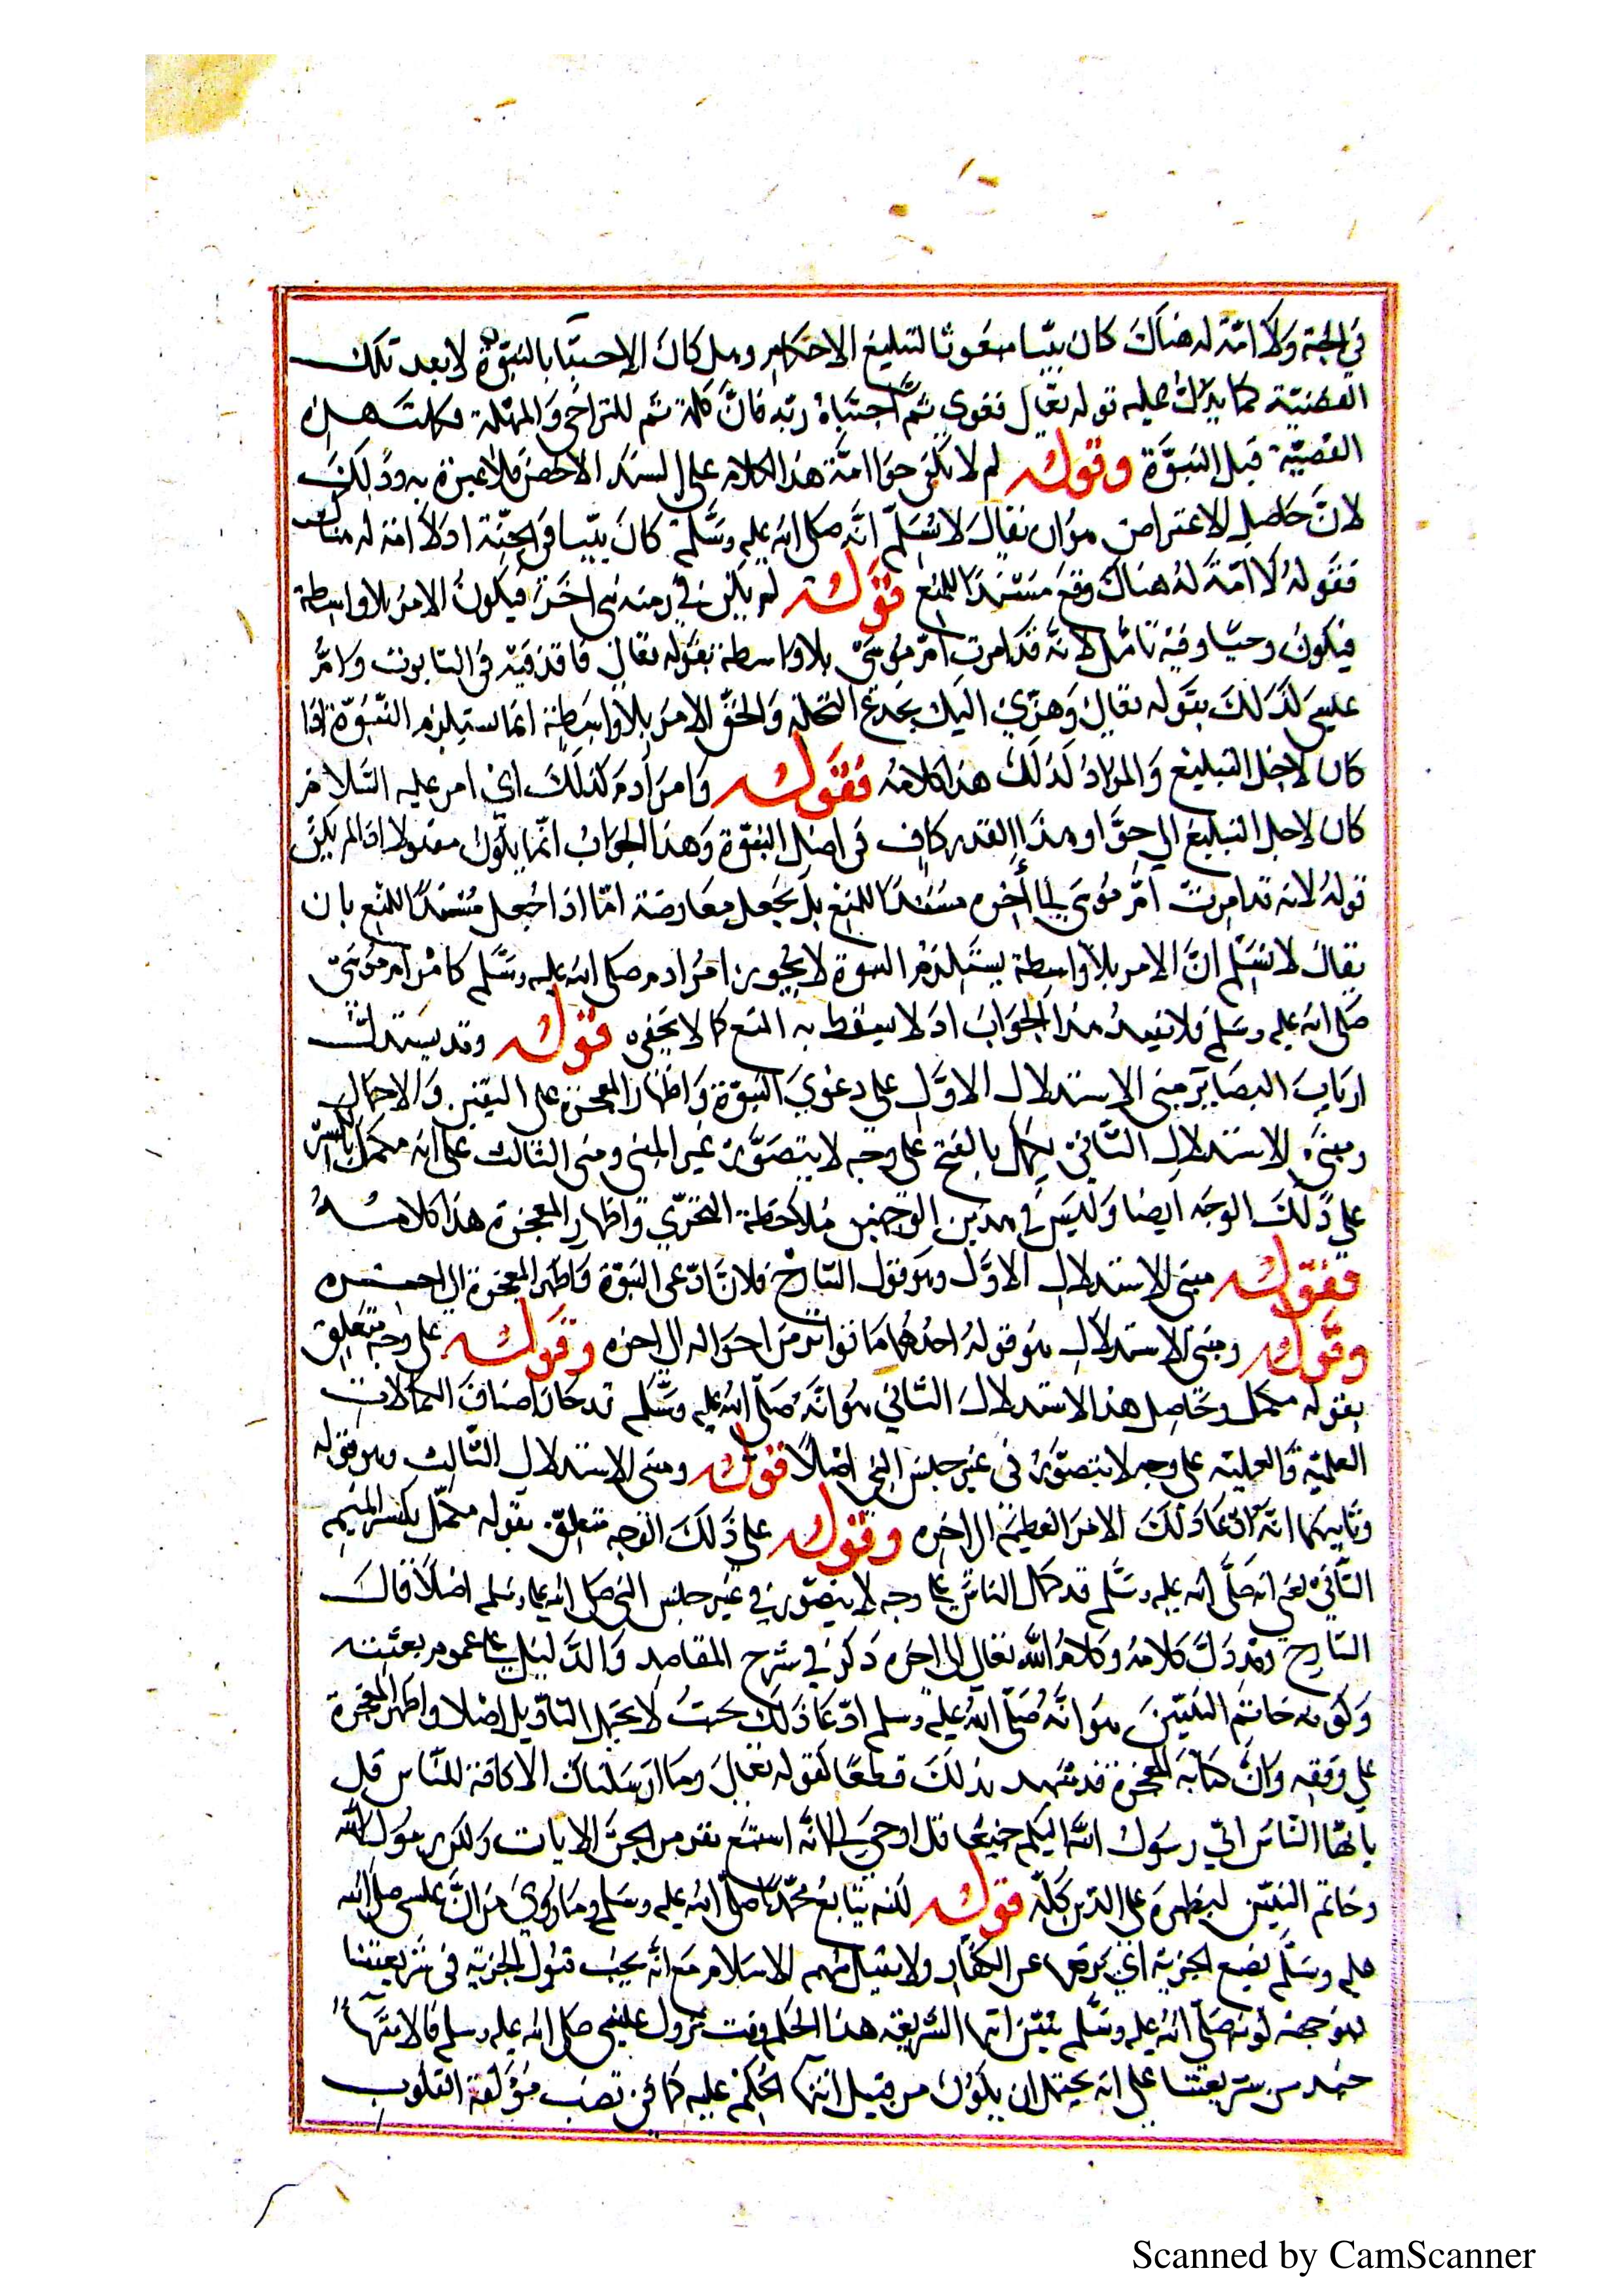 في الجنة ولا امّة له هناك كان نبيّا مبعوثا لتبليغ الاحكام وهل كان الاجتباء بالنبوّة لا بعد تلك
القضيّة كما يدلّ عليه قوله تعالى فغوى ثمّ اجتباه ربّه فانّ كلمة ثم للتراخي والمهلة فكانت هذه
القصّة قبل النبوّة وقوله لم لا يكفي حوّا امّة هذا الكلام على السند الاخصّ فلا عبرة به وذلك
لانّ حاصل الاعتراض هو ان يقال لا نسلّم انّه صلى الله عليه وسلّم كان نبيّا في الجنّة اذ لا امّة له هناك
فقوله لا امّة له هناك وقع مستندا للمنع قوله لم يكن في زمنه نبى اخر فيكون الامر بلا واسطة
فيكون وحيا وفيه تامّل لانّه قد امرت امّ موسى بلا واسطة بقوله تعالى فاقذفيه في التابوت وامّ
عليسى كذلك بقوله تعالى وهزّي اليك بجذع النخلة والحقّ الامر بلا واسطة انما يستلزم النّبوّة اذا
كان لاجل التبليغ والمراد كذلك هذا كلامه فقوله وامر آدم كذلك اي امر عليه السّلام
كان لاجل التبليغ الى حوّا وهذا القدر كاف في اصل النبوّة وهذا الجواب انّما يكون مقبولا اذا لم يكن
قوله لانه قد امرت امّ موسى الى اخره مستندا للمنع بل يجعل معارضة امّا اذا جعل مستندا للمنع بان
يقال لا نسلّم انّ الامر بلا واسطة يستلزم النبوة لا يجوز ان امر ادم صلى الله عليه وسلّم كامر امّ موسى
صلى الله عليه وسلم فلا يفيد هذا الجواب اذ لا يسقط به المنع كما لا يخفى قوله وقد يستدلّ
ارباب البصاير مبنى الاستدلال الاوّل على دعوي النبوّة واظهار المعجزة على اليقين والاجمال
ومبنى الاستدلال الثّاني يكمل بالفتح على وجه لا يتصوّر في غير النبى ومبنى الثالث على انه مكمل بالكسر
على ذلك الوجه ايضا وليس في هذين الوجهين ملاحظة التحدّي واظهار المعجزة هذا كلامه
فقوله مبنى الاستدلال الاوّل وهو قول الشارح فلانّ ادّعى النبوّة واظهر المعجزة الى اخره
وقوله ومبنى الاستدلال هو قوله احدهما ما تواتر من احواله الى اخره وقوله على وجه متعلق
بقوله مكمل وحاصل هذا الاستدلال الثّاني هو انّه صلّى الله عليه وسّلم قد حاز اصناف الكمالات
العلميّة والعمليّة على وجه لا يتصوّر في غير جنس النبي اصلا قوله ومبنى الاستدلال الثّالث وهو قوله
وثانيهما انّه ادّعا ذلك الامر العظيم الى اخره وقوله على ذلك الوجه متعلّق بقوله مكمّل بكسر الميم
الثّاني يعني انه صلّى الله عليه وسّلم قد كمّل الناس على وجه لا يتصوّر في غير جنس النبي صلى الله عليه وسلم اصلا قال
الشارح وقد دلّ كلامه وكلام الله تعالى الى اخره ذكر في شرح المقاصد والدّليل على عموم بعثته
وكونه خاتم النّبيّين هو انّه صلّى الله عليه وسلم ادّعا ذلك بحيث لا يحتمل التأويل اصلا واظهر المعجزة
على وفقه وانّ كتابه المعجزة قد شهد بذلك قطعًا كقوله تعالى وما ارسلناك الا كافة للنّاس قل
يا ايّها النّاس اني رسول الله اليكم جميعا قل اوحي الى انّه استمع نفر من الجنّ الايات ولكن رسول الله
وخاتم النبيّين ليظهره على الدّين كلّه قوله لكنه يتابع محمّدا صلّى الله عليه وسلم وما روي من انّ عليسى صلى الله
عليه وسلّم يضع الجزية اي يرفعها عن الكفّار ولا يقبل منهم الا الاسلام مع انّه يجب قبول الجزية في شريعتنا
فوجهه انه صلّى الله عليه وسّلم بيّن انتهاء الشريعة هذا الحكم وقت نزول عليسى صلى الله عليه وسلم فالانتهاء
حينئذ من شريعتنا على انه يحتمل ان يكون من قبيل انتهاء الحكم عليه كما في نصب مؤلفة القلوب
Scanned by CamScanner